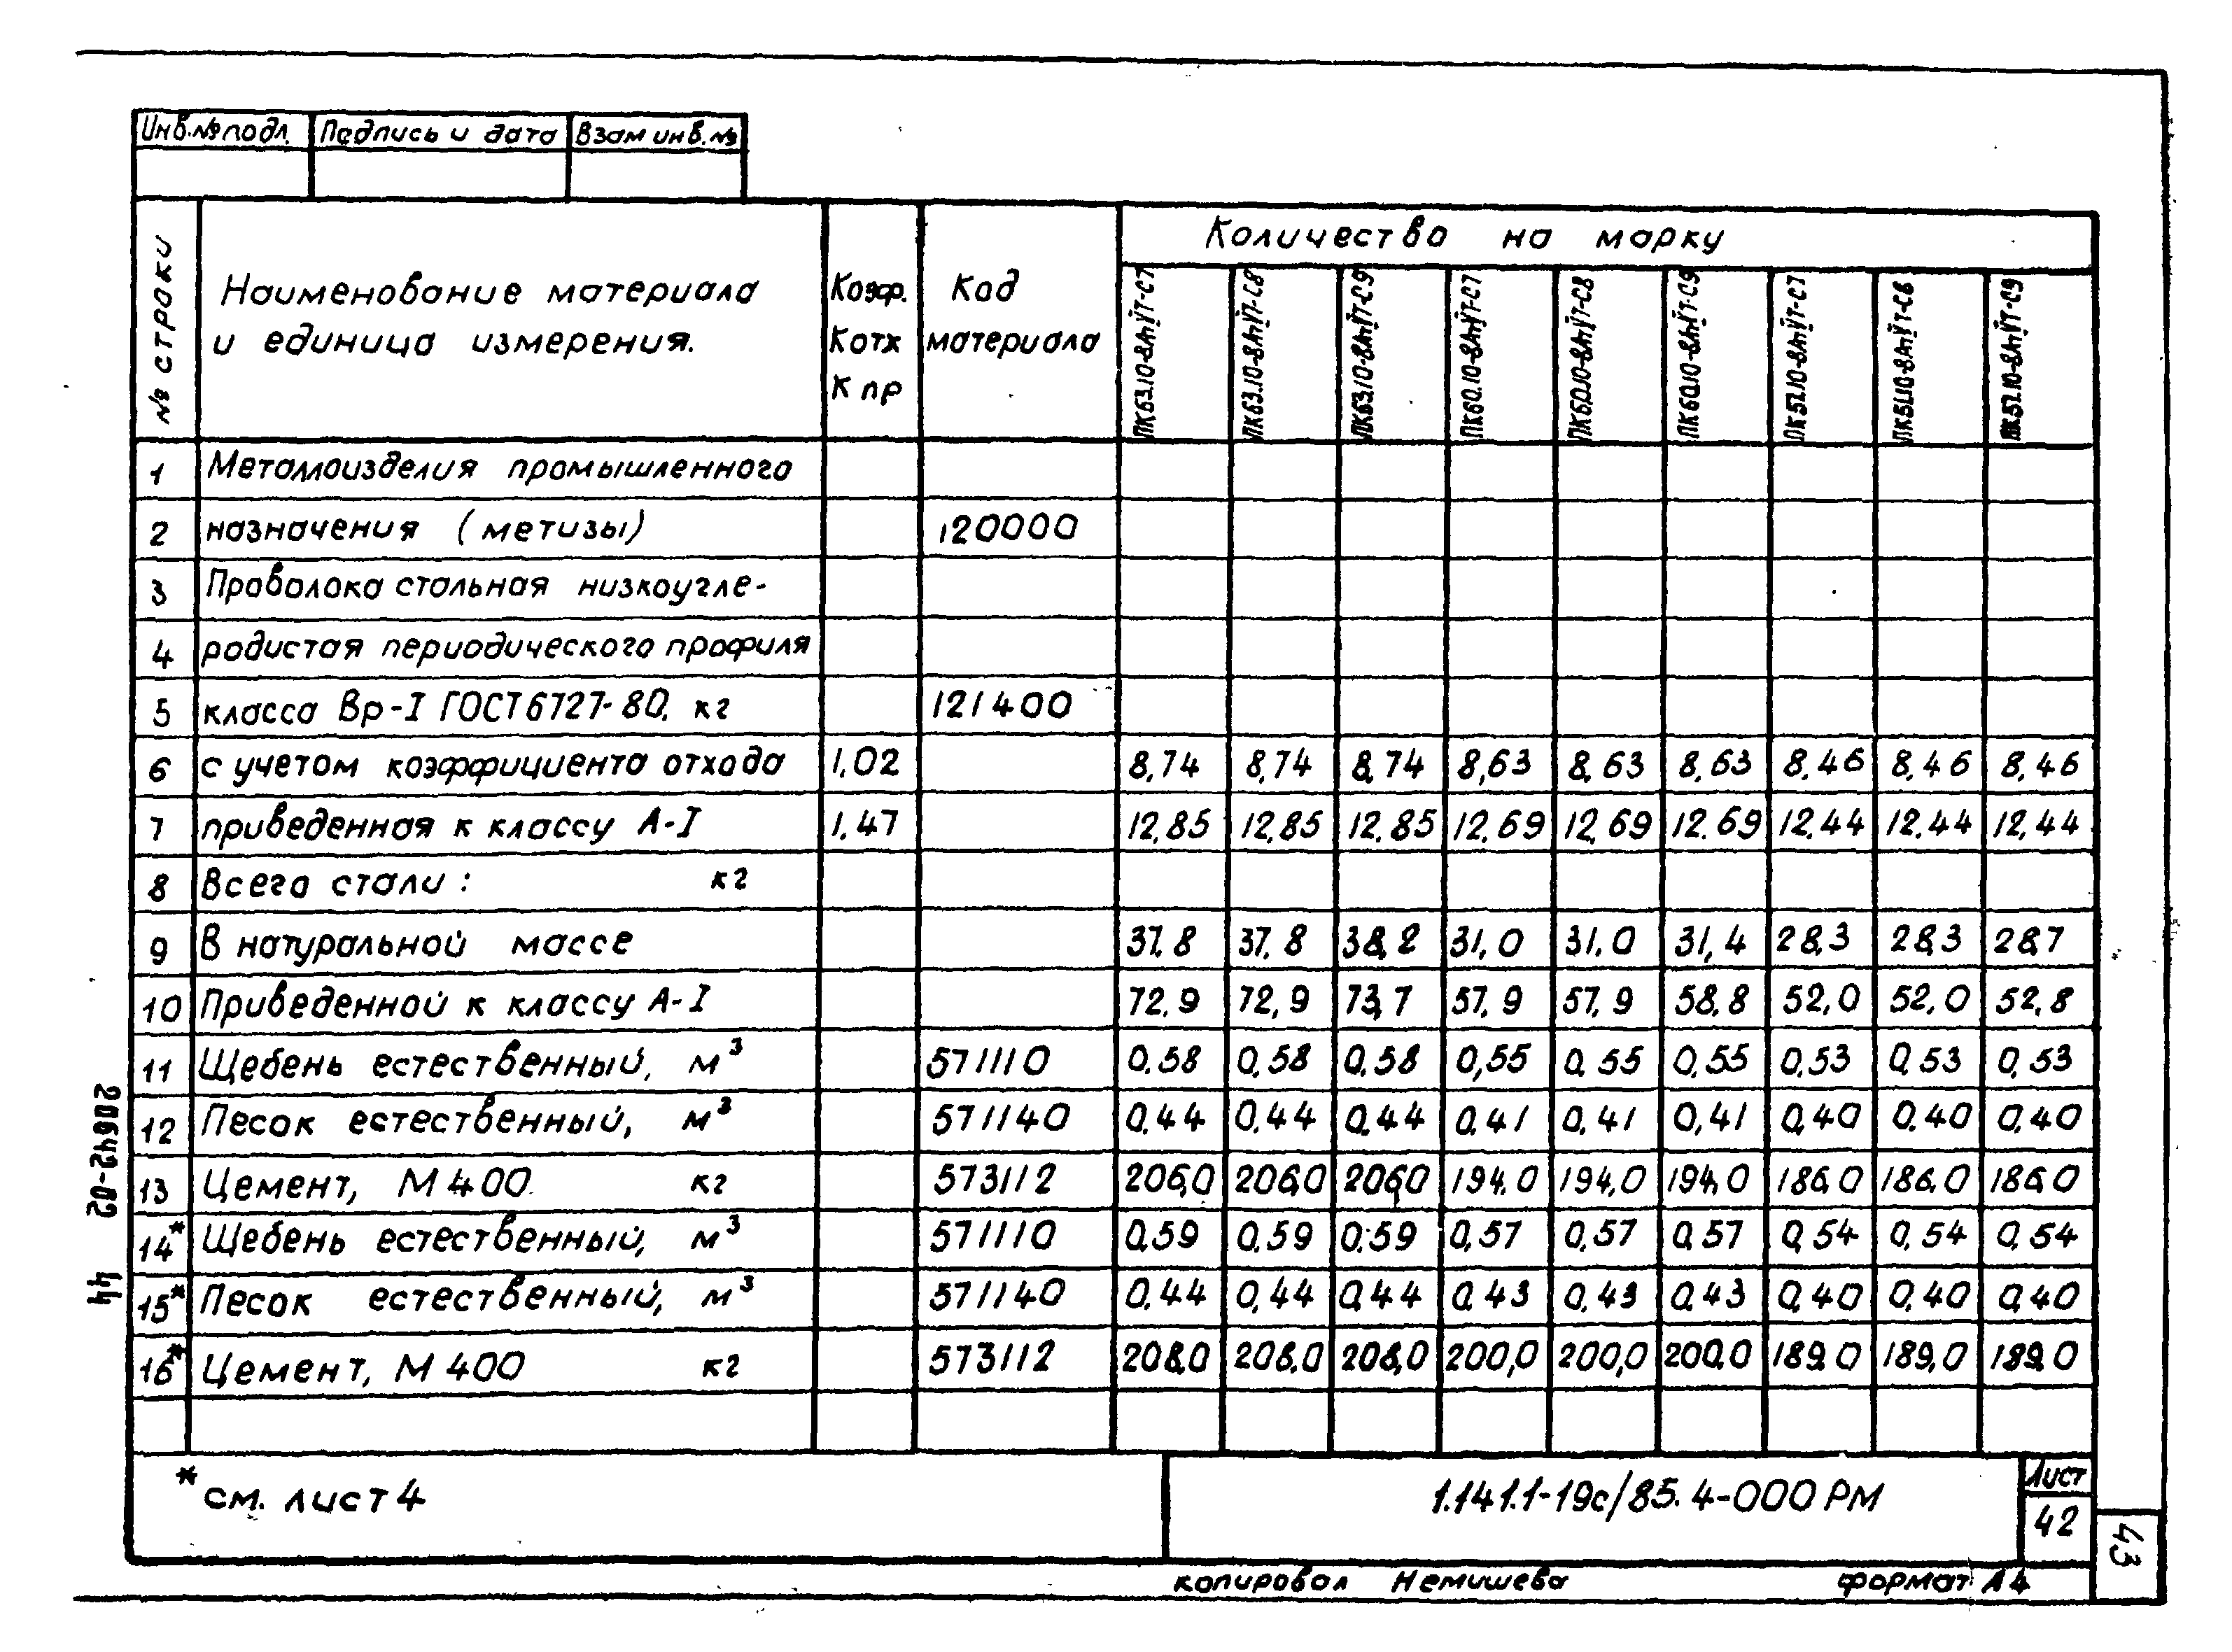 Инв.№подл. Подпись и дата Взам инв.№
№ строки
Наименование материала
и единица измерения.
Коэф.
Котх
К пр
Код
материала
Количество на марку
ПК63.10-8АтV̄Т-С7 ПК63.10-8АтV̄Т-С8 ПК63.10-8АтV̄Т-С9 ПК60.10-8АтV̄Т-С7 ПК60.10-8АтV̄Т-С8 ПК60.10-8АтV̄Т-С9 ПК57.10-8АтV̄Т-С7 ПК57.10-8АтV̄Т-С8 ПК57.10-8АтV̄Т-С9
1 Металлоизделия промышленного
2 назначения (метизы) 120000
3 Проволока стальная низкоугле-
4 родистая периодического профиля
5 класса Вр-I ГОСТ6727-80, кг 121400
6 с учетом коэффициента отхода 1,02 8,74 8,74 8,74 8,63 8,63 8,63 8,46 8,46 8,46
7 приведенная к классу А-I 1,47 12,85 12,85 12,85 12,69 12,69 12,69 12,44 12,44 12,44
8 Всего стали: кг
9 В натуральной массе 37,8 37,8 38,2 31,0 31,0 31,4 28,3 28,3 28,7
10 Приведенной к классу А-I 72,9 72,9 73,7 57,9 57,9 58,8 52,0 52,0 52,8
11 Щебень естественный, м³ 571110 0,58 0,58 0,58 0,55 0,55 0,55 0,53 0,53 0,53
12 Песок естественный, м³ 571140 0,44 0,44 0,44 0,41 0,41 0,41 0,40 0,40 0,40
13 Цемент, М400 кг 573112 206,0 206,0 206,0 194,0 194,0 194,0 186,0 186,0 186,0
14* Щебень естественный, м³ 571110 0,59 0,59 0,59 0,57 0,57 0,57 0,54 0,54 0,54
15* Песок естественный, м³ 571140 0,44 0,44 0,44 0,43 0,43 0,43 0,40 0,40 0,40
16* Цемент, М400 кг 573112 208,0 208,0 208,0 200,0 200,0 200,0 189,0 189,0 189,0
* см. лист 4
1.141.1-19с/85.4-000 РМ
Лист
42
43
копировал Немишева формат А4
20642-02 44